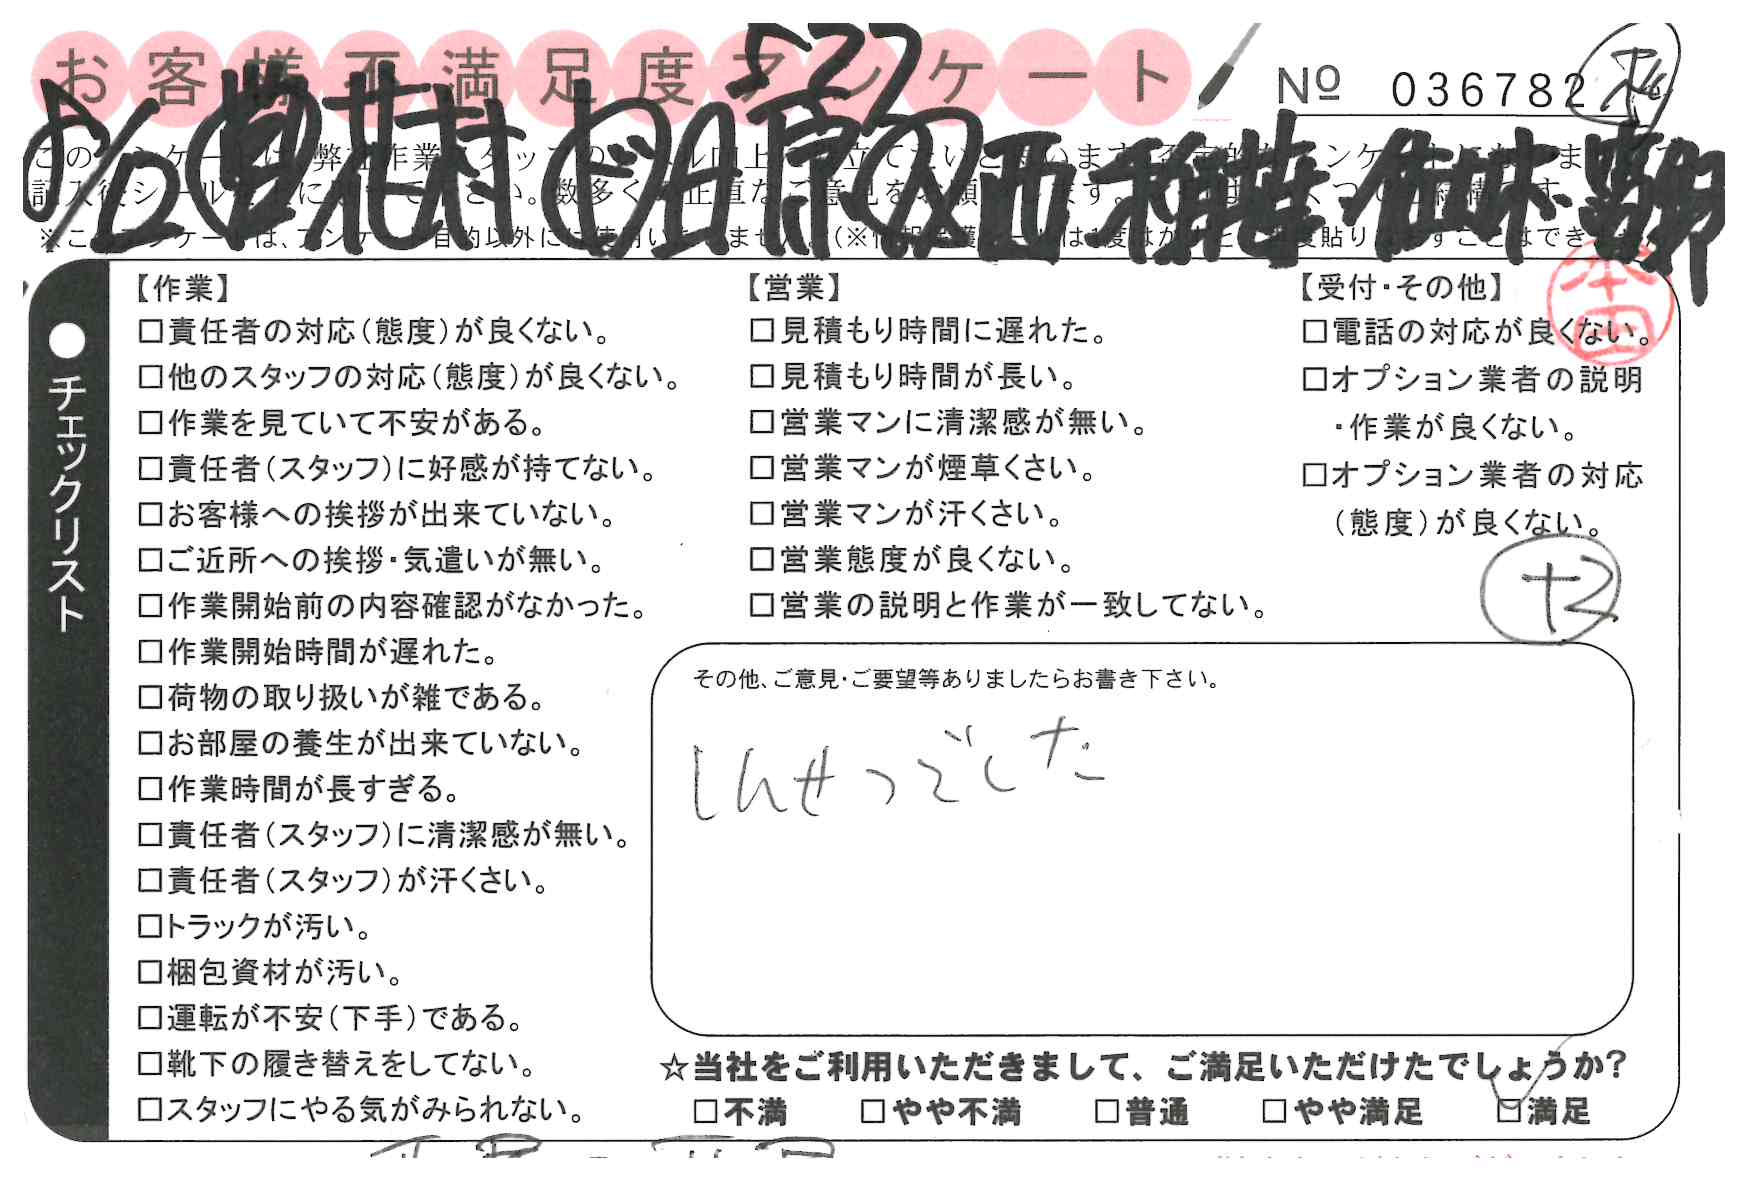 お客様不満足度アンケート
527
№ 036782
5/12 花村 日原 西
【作業】
□責任者の対応(態度)が良くない。
□他のスタッフの対応(態度)が良くない。
□作業を見ていて不安がある。
□責任者(スタッフ)に好感が持てない。
□お客様への挨拶が出来ていない。
□ご近所への挨拶・気遣いが無い。
□作業開始前の内容確認がなかった。
□作業開始時間が遅れた。
□荷物の取り扱いが雑である。
□お部屋の養生が出来ていない。
□作業時間が長すぎる。
□責任者(スタッフ)に清潔感が無い。
□責任者(スタッフ)が汗くさい。
□トラックが汚い。
□梱包資材が汚い。
□運転が不安(下手)である。
□靴下の履き替えをしてない。
□スタッフにやる気がみられない。
【営業】
□見積もり時間に遅れた。
□見積もり時間が長い。
□営業マンに清潔感が無い。
□営業マンが煙草くさい。
□営業マンが汗くさい。
□営業態度が良くない。
□営業の説明と作業が一致してない。
【受付・その他】
□電話の対応が良くない。
□オプション業者の説明
・作業が良くない。
□オプション業者の対応
(態度)が良くない。
本田
+2
●チェックリスト
その他、ご意見・ご要望等ありましたらお書き下さい。
しんせつでした
☆当社をご利用いただきまして、ご満足いただけたでしょうか?
□不満 □やや不満 □普通 □やや満足 ☑満足